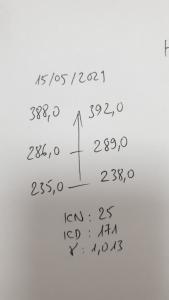 15/05/2021
388,0 392,0
286,0 289,0
235,0 238,0
ICN: 25
ICD: 171
γ: 1,013